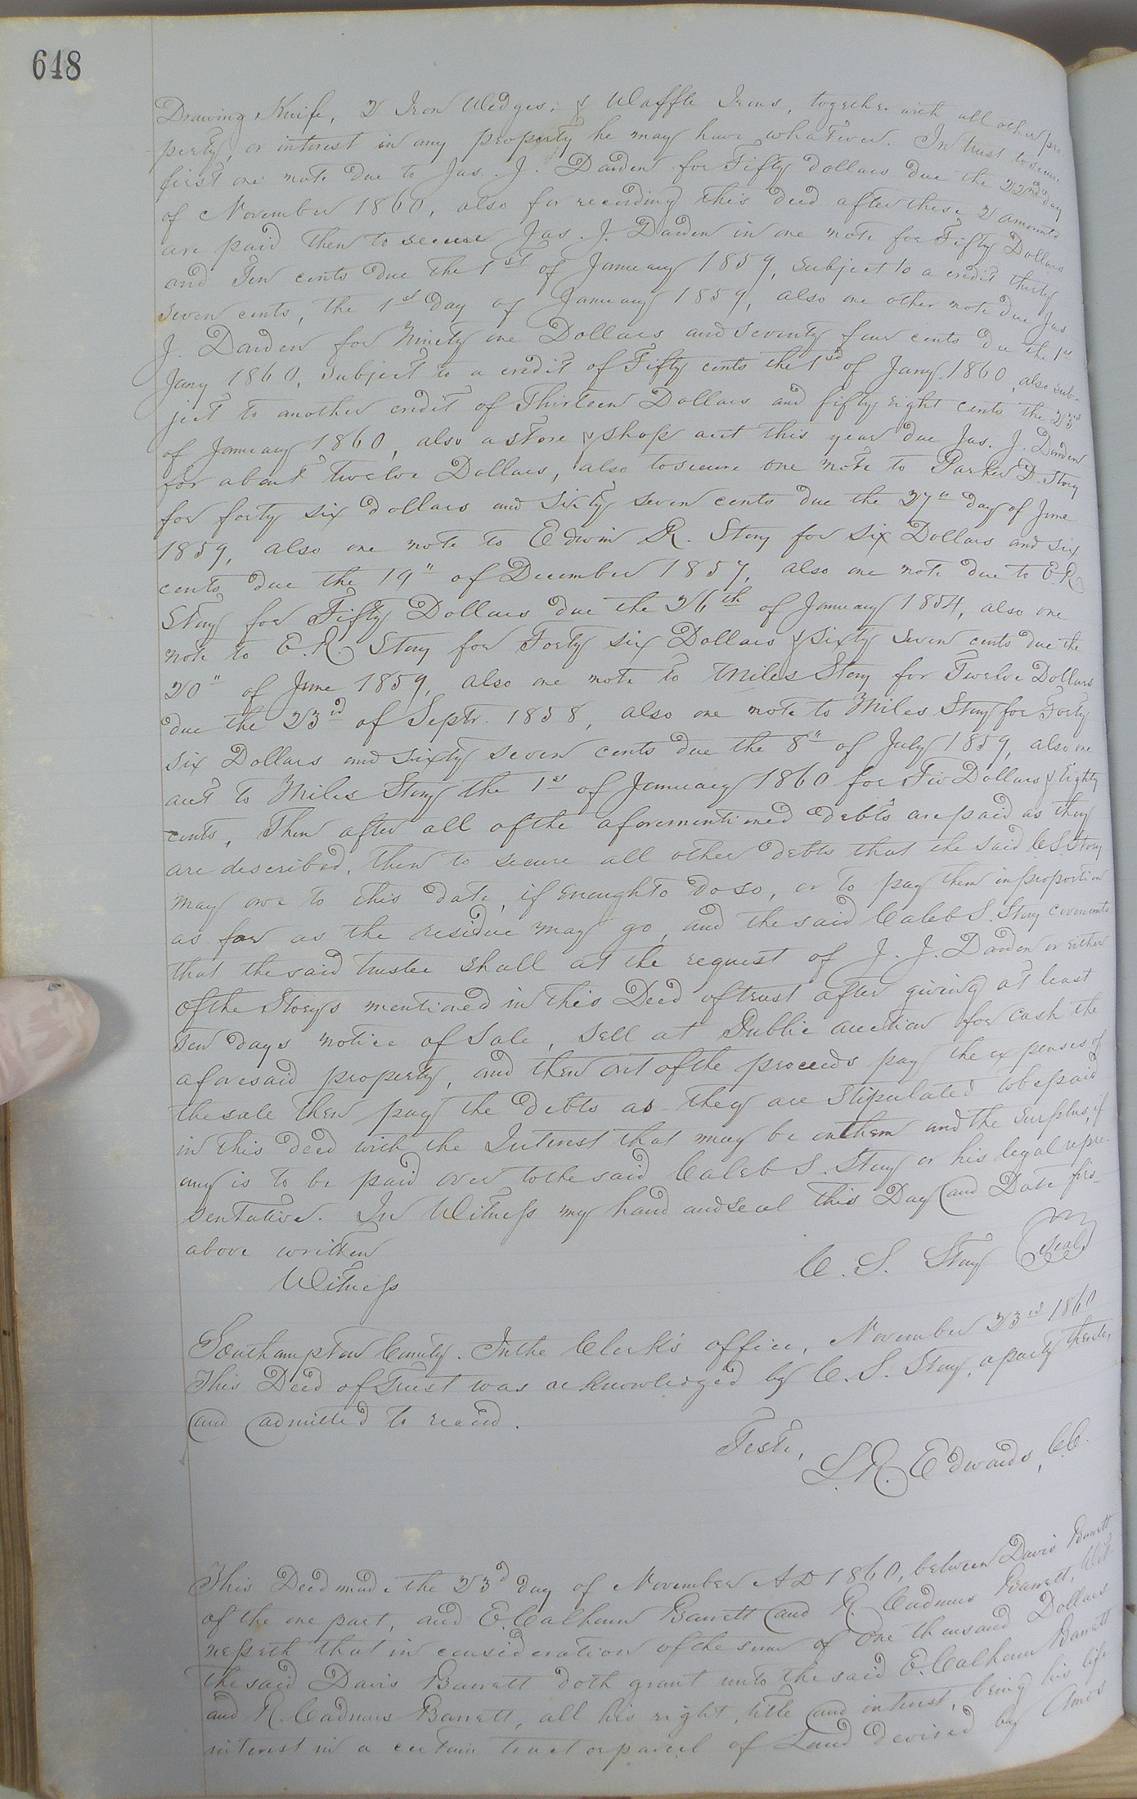 648
Drawing Knife, 2 Iron Wedges, & Waffle Irons, together with all other pro
perty, or interest in any property he may have whatever. In trust to secure
first one note due to Jas. J. Darden for Fifty dollars due the 22nd day
of November 1860, also for recording this deed after these 2 amounts
are paid then to secure Jas. J. Darden in one note for Fifty Dollars
and Ten cents due the 1st of January 1859, subject to a credit thirty
seven cents, the 1st day of January 1859, also one other note due Jas
J. Darden for Ninety one Dollars and seventy four cents due the 1st
Jany 1860, subject to a credit of Fifty cents the 1st of Jany. 1860, also sub-
ject to another credit of Thirteen Dollars and fifty eight cents the 23rd
of January 1860, also a store & shop acct this year due Jas. J. Darden
for about twelve Dollars, also to secure one note to Parker D. Story
for forty six dollars and sixty seven cents due the 27" day of June
1859, also one note to Edwin R. Story for six Dollars and six
cents due the 19" of December 1857, also one note due to E.R.
Story for Fifty Dollars due the 26th of January 1854, also one
note to E.R. Story for Forty six Dollars & sixty seven cents due the
20" of June 1859, also one note to Miles Story for Twelve Dollars
due the 23rd of Septr. 1858, also one note to Miles Story for Forty
six Dollars and sixty seven cents due the 8" of July 1859, also one
acct to Miles Story the 1st of January 1860 for Dollars & Eighty
cents, Then after all of the aforementioned debts are paid as they
are described, then to secure all other debts that the said C S Story
may owe to this date, if enough to do so, or to pay them in proportion
as far as the residue may go, and the said Caleb S. Story covenants
that the said trustee shall at the request of J. J. Darden or either
of the Storys mentioned in this Deed of trust after giving at least
ten days notice of Sale, sell at Public auction for cash the
aforesaid property, and then out of the proceeds pay the expenses of
the sale then pay the debts as they are stipulated to be paid
in this deed with the Interest that may be on them and the surplus, if
any is to be paid over to the said Caleb S. Story or his legal repre-
sentative. In Witness my hand and seal this Day and Date firs-
above written
C. S. Story (Seal)
Witness
Southampton County. In the Clerk's office, November 23rd 1860
This Deed of Trust was acknowledged by C. S. Story, a party thereto,
and admitted to record.
Teste,
L. R. Edwards, C.C.
This Deed made the 23d day of November A D 1860, between Davis Barrett
of the one part, and E. Calhoun Barrett and R. Cadmus Barrett, Wit-
nesseth that in consideration of the sum of One thousand Dollars
the said Davis Barrett doth grant unto the said E. Calhoun Barrett
and R. Cadmus Barrett, all his right, title and interest, being his life
interest in a certain tract or parcel of Land devised by Amos